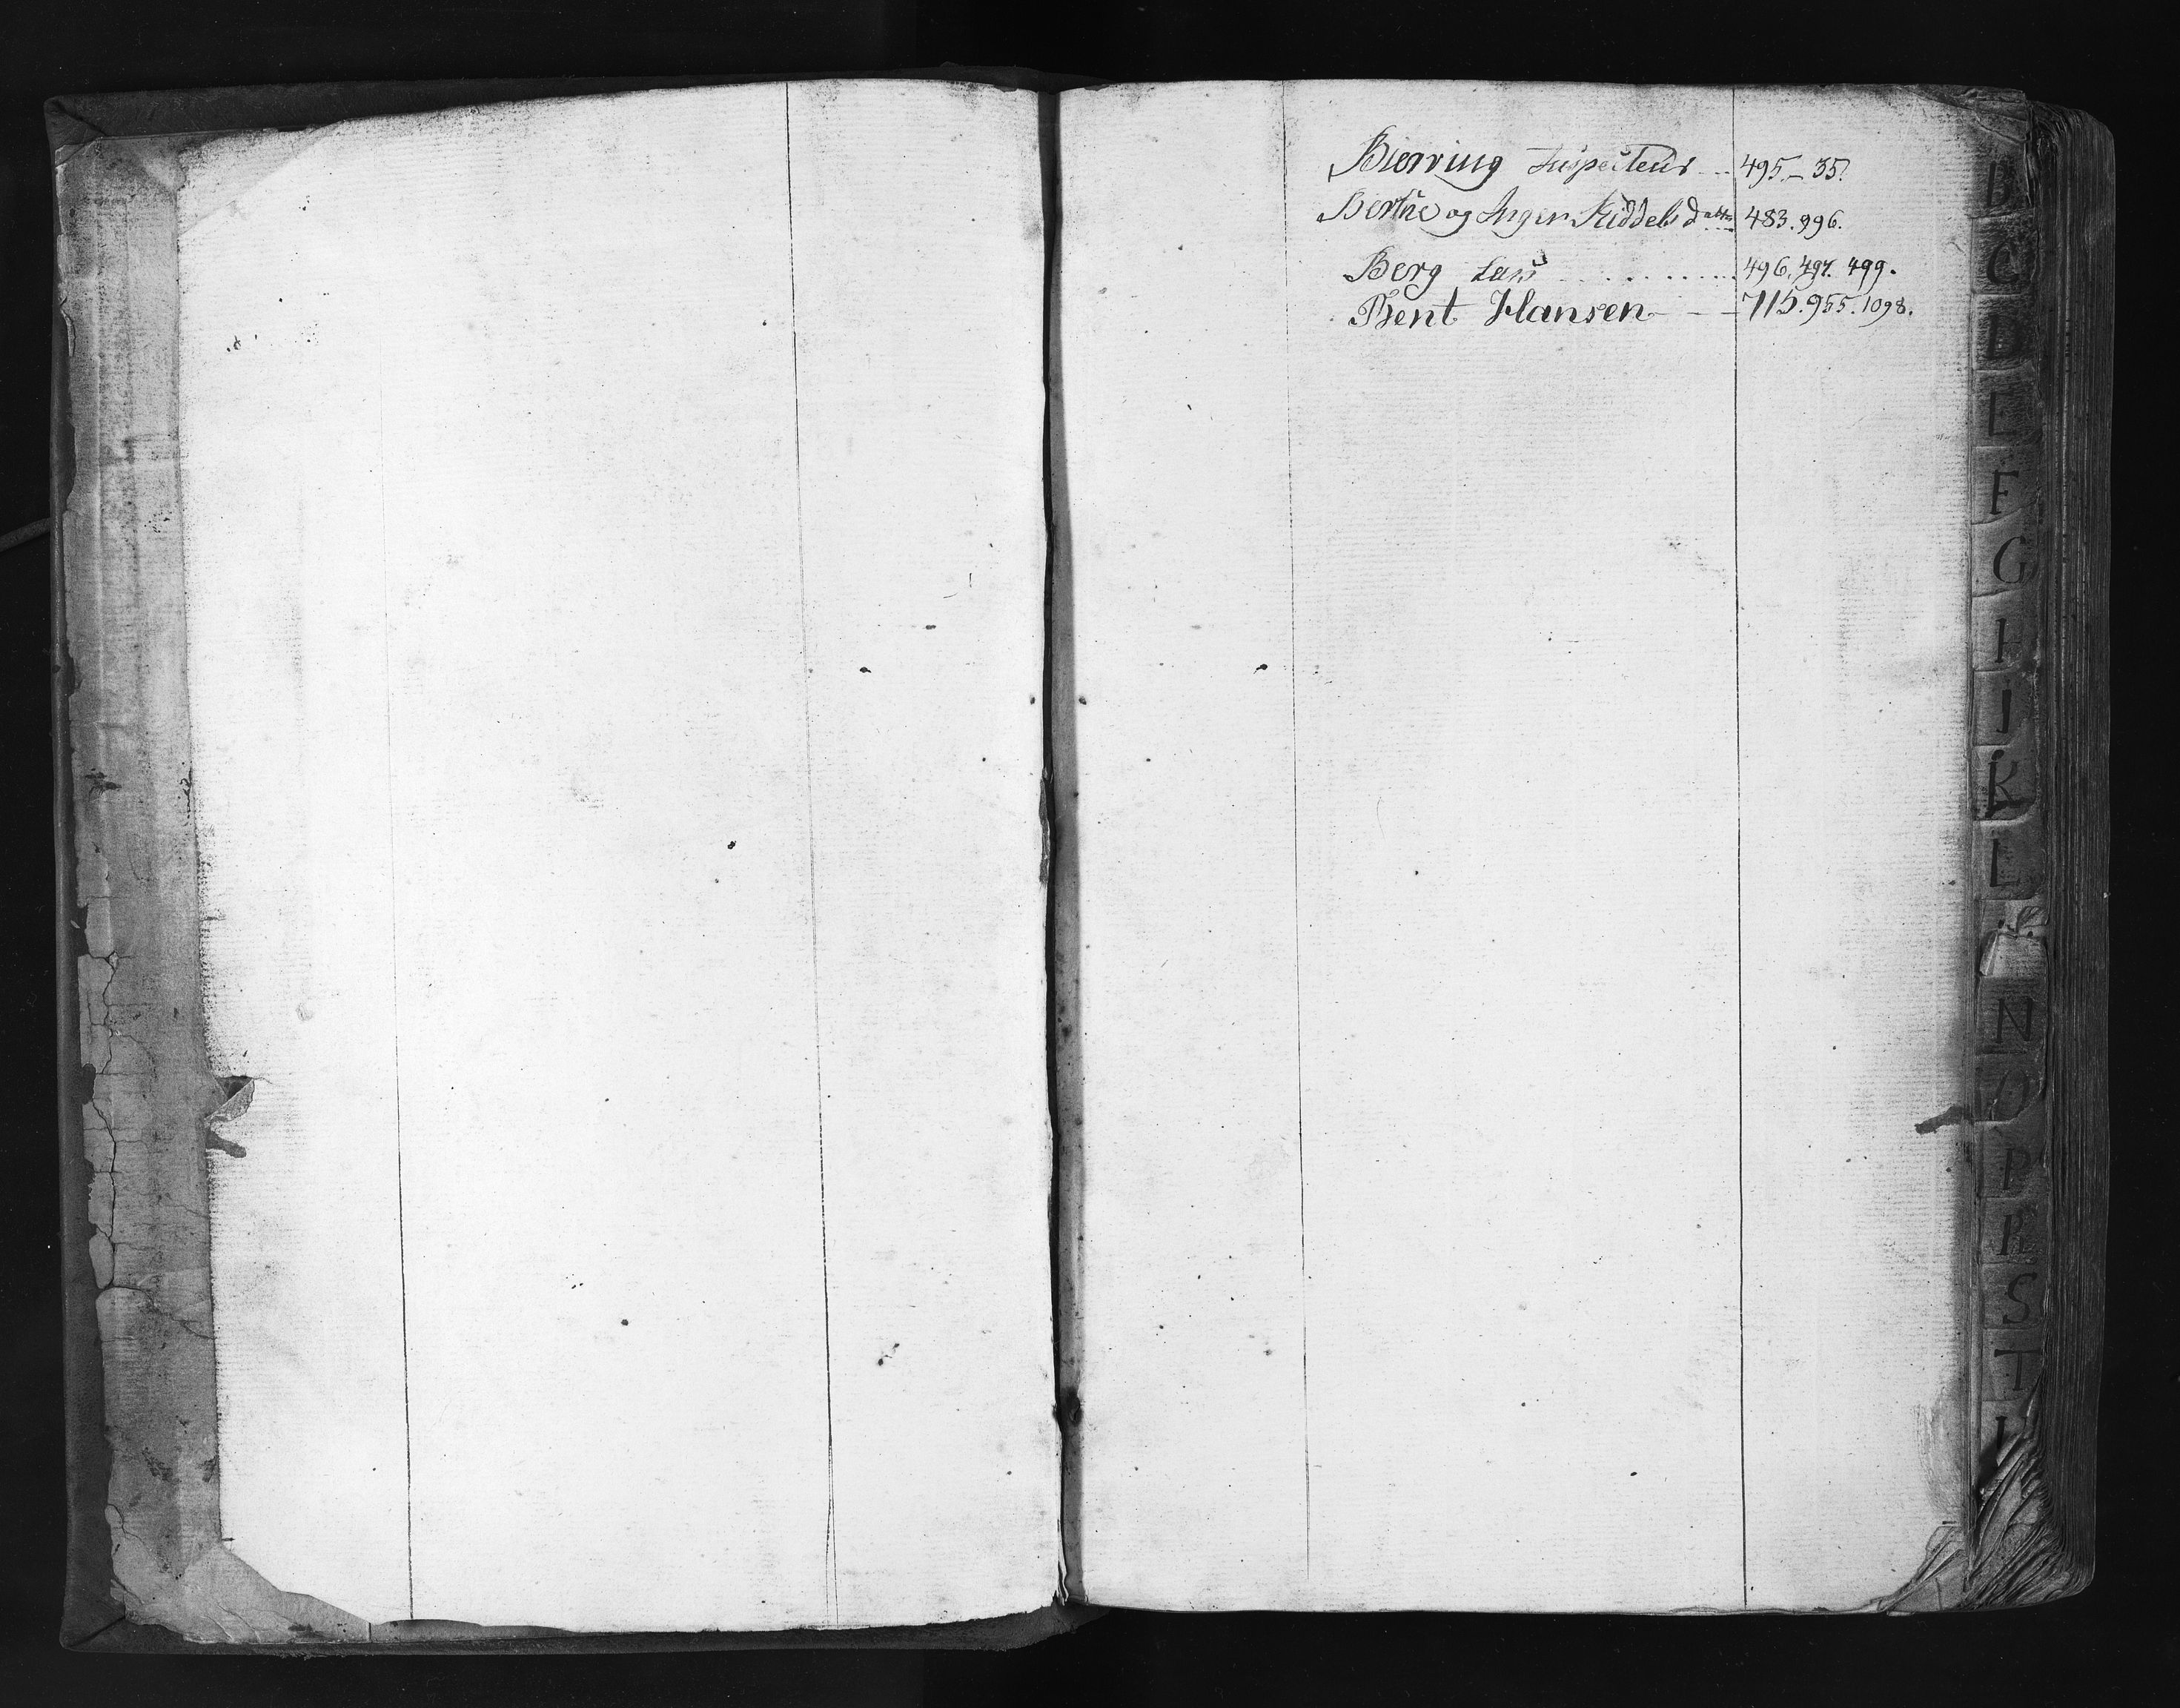 Bierring Inspecteur --- 495.- 35.
Berthe og Inger Kiddelsdatter ... 483. 996.
Berg Lars .......... 496. 497. 499.
Bent Hansen - - - 715. 955. 1098.
B
C
D
E
F
G
H
I
K
L
N
O
P
R
S
T